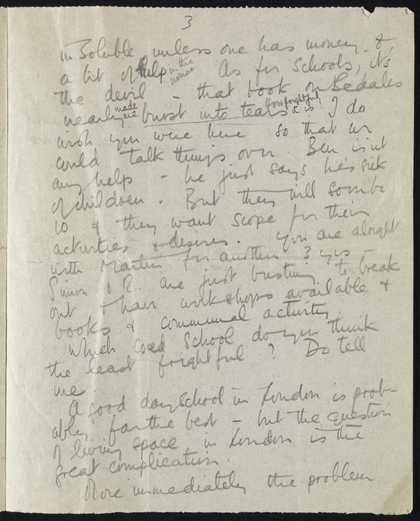 3
insoluble unless one has money &
a bit of help in the house. As for schools, it's
the devil – that book on Bedales
nearly made me burst into tears. I do
wish you were here so that we
could talk things over. Ben isn't
any help – he just says he's sick
of children. But they will soon be
10 & they want scope for their
activities & desires. You are alright
with Martin for another 3 yrs
Simon & R. are just bursting to break
out – have workshops available &
books & communal activity
Which coed School do you think
the least frightful? Do tell
me
A good day school in London is prob-
ably far the best – but the question
of living space in London is the
great complication.
More immediately the problem